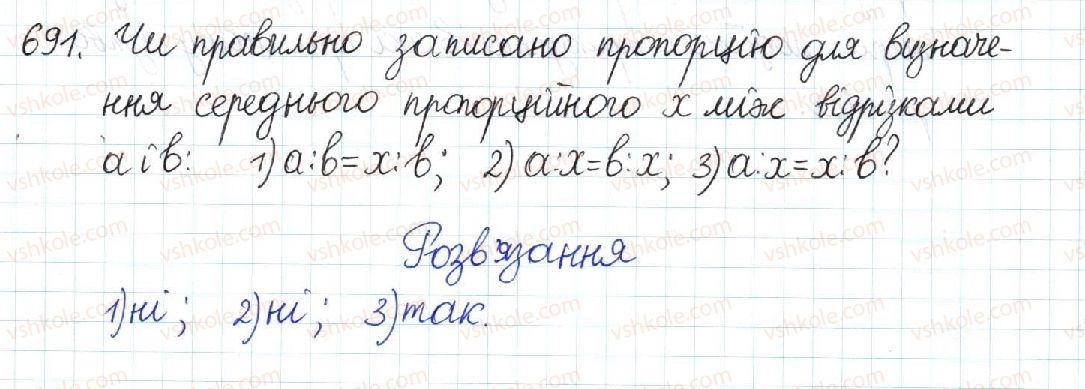 691. Чи правильно записано пропорцію для визначе-
ння середнього пропорційного x між відрізками
a і b: 1) a:b=x:b; 2) a:x=b:x; 3) a:x=x:b?
Розв'язання
1) ні; 2) ні; 3) так.